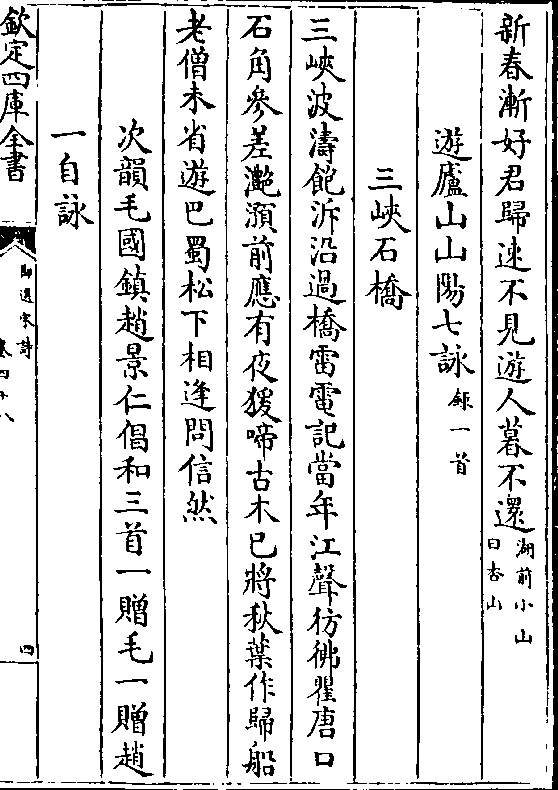 新春漸好君歸速不見遊人暮不還湖前小山
曰杏山
遊廬山山陽七詠録一首
三峽石橋
三峽波濤飽泝沿過橋雷電記當年江聲彷彿瞿唐口
石角參差灧澦前應有夜猨啼古木已將秋葉作歸船
老僧未省遊巴蜀松下相逢問信然
次韻毛國鎮趙景仁倡和三首一贈毛一贈趙
一自詠
欽定四庫全書
御選宋詩
卷四十八
四